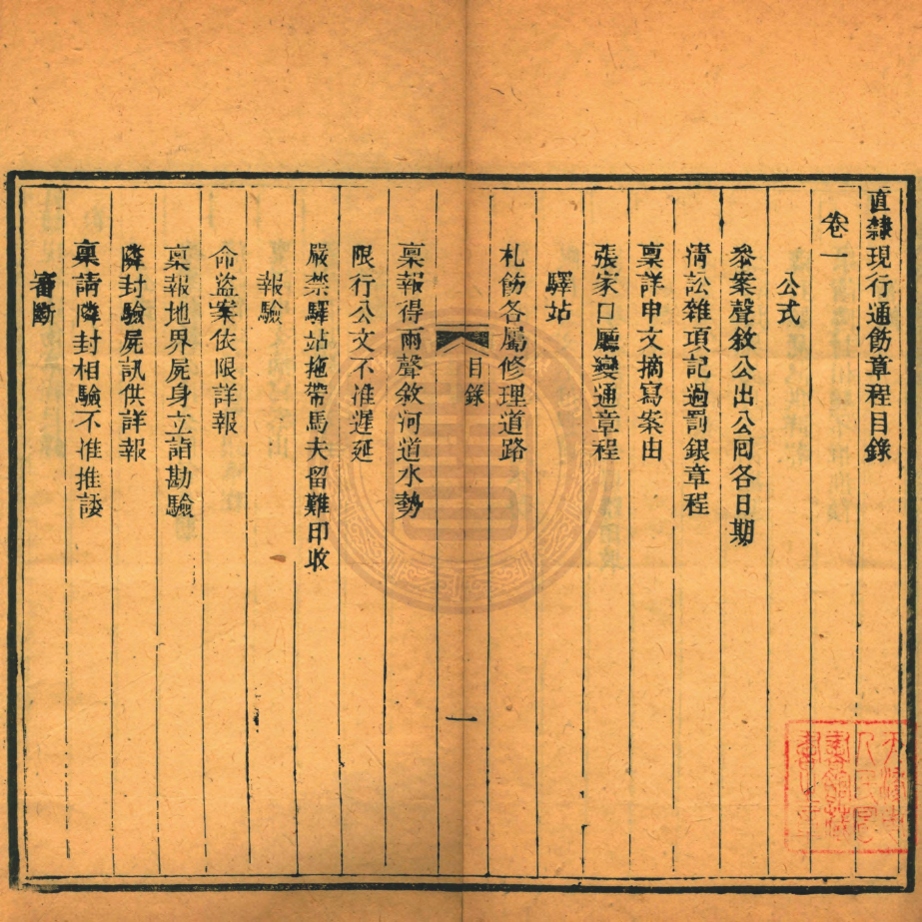 直隸現行通飭章程目錄
卷一
公式
叅案聲敘公出公囘各日期
清訟雜項記過罰銀章程
稟詳申文摘寫案由
張家口廳變通章程
驛站
札飭各屬修理道路
目錄
一
稟報得雨聲敘河道水勢
限行公文不准遲延
嚴禁驛站拖帶馬夫留難印收
報驗
命盜案依限詳報
稟報地界屍身立詣勘驗
隣封驗屍訊供詳報
稟請隣封相驗不准推諉
審斷